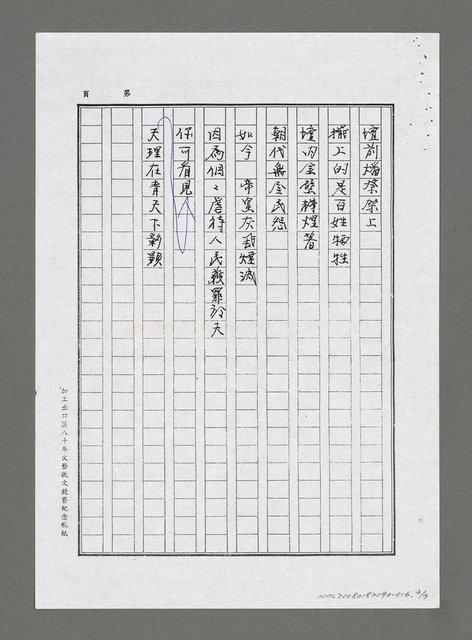 第 頁
壇前燔祭架上
擺上的是百姓牺牲
壇內金壁輝煌着
朝代無念民怨
如今 帝皇灰飛煙滅
因為個々虐待人民獲罪於天
你可看見
天理在青天下彰顯
加工出口區八十年文藝徵文競賽紀念稿紙
NML20080182090-016, 3/3